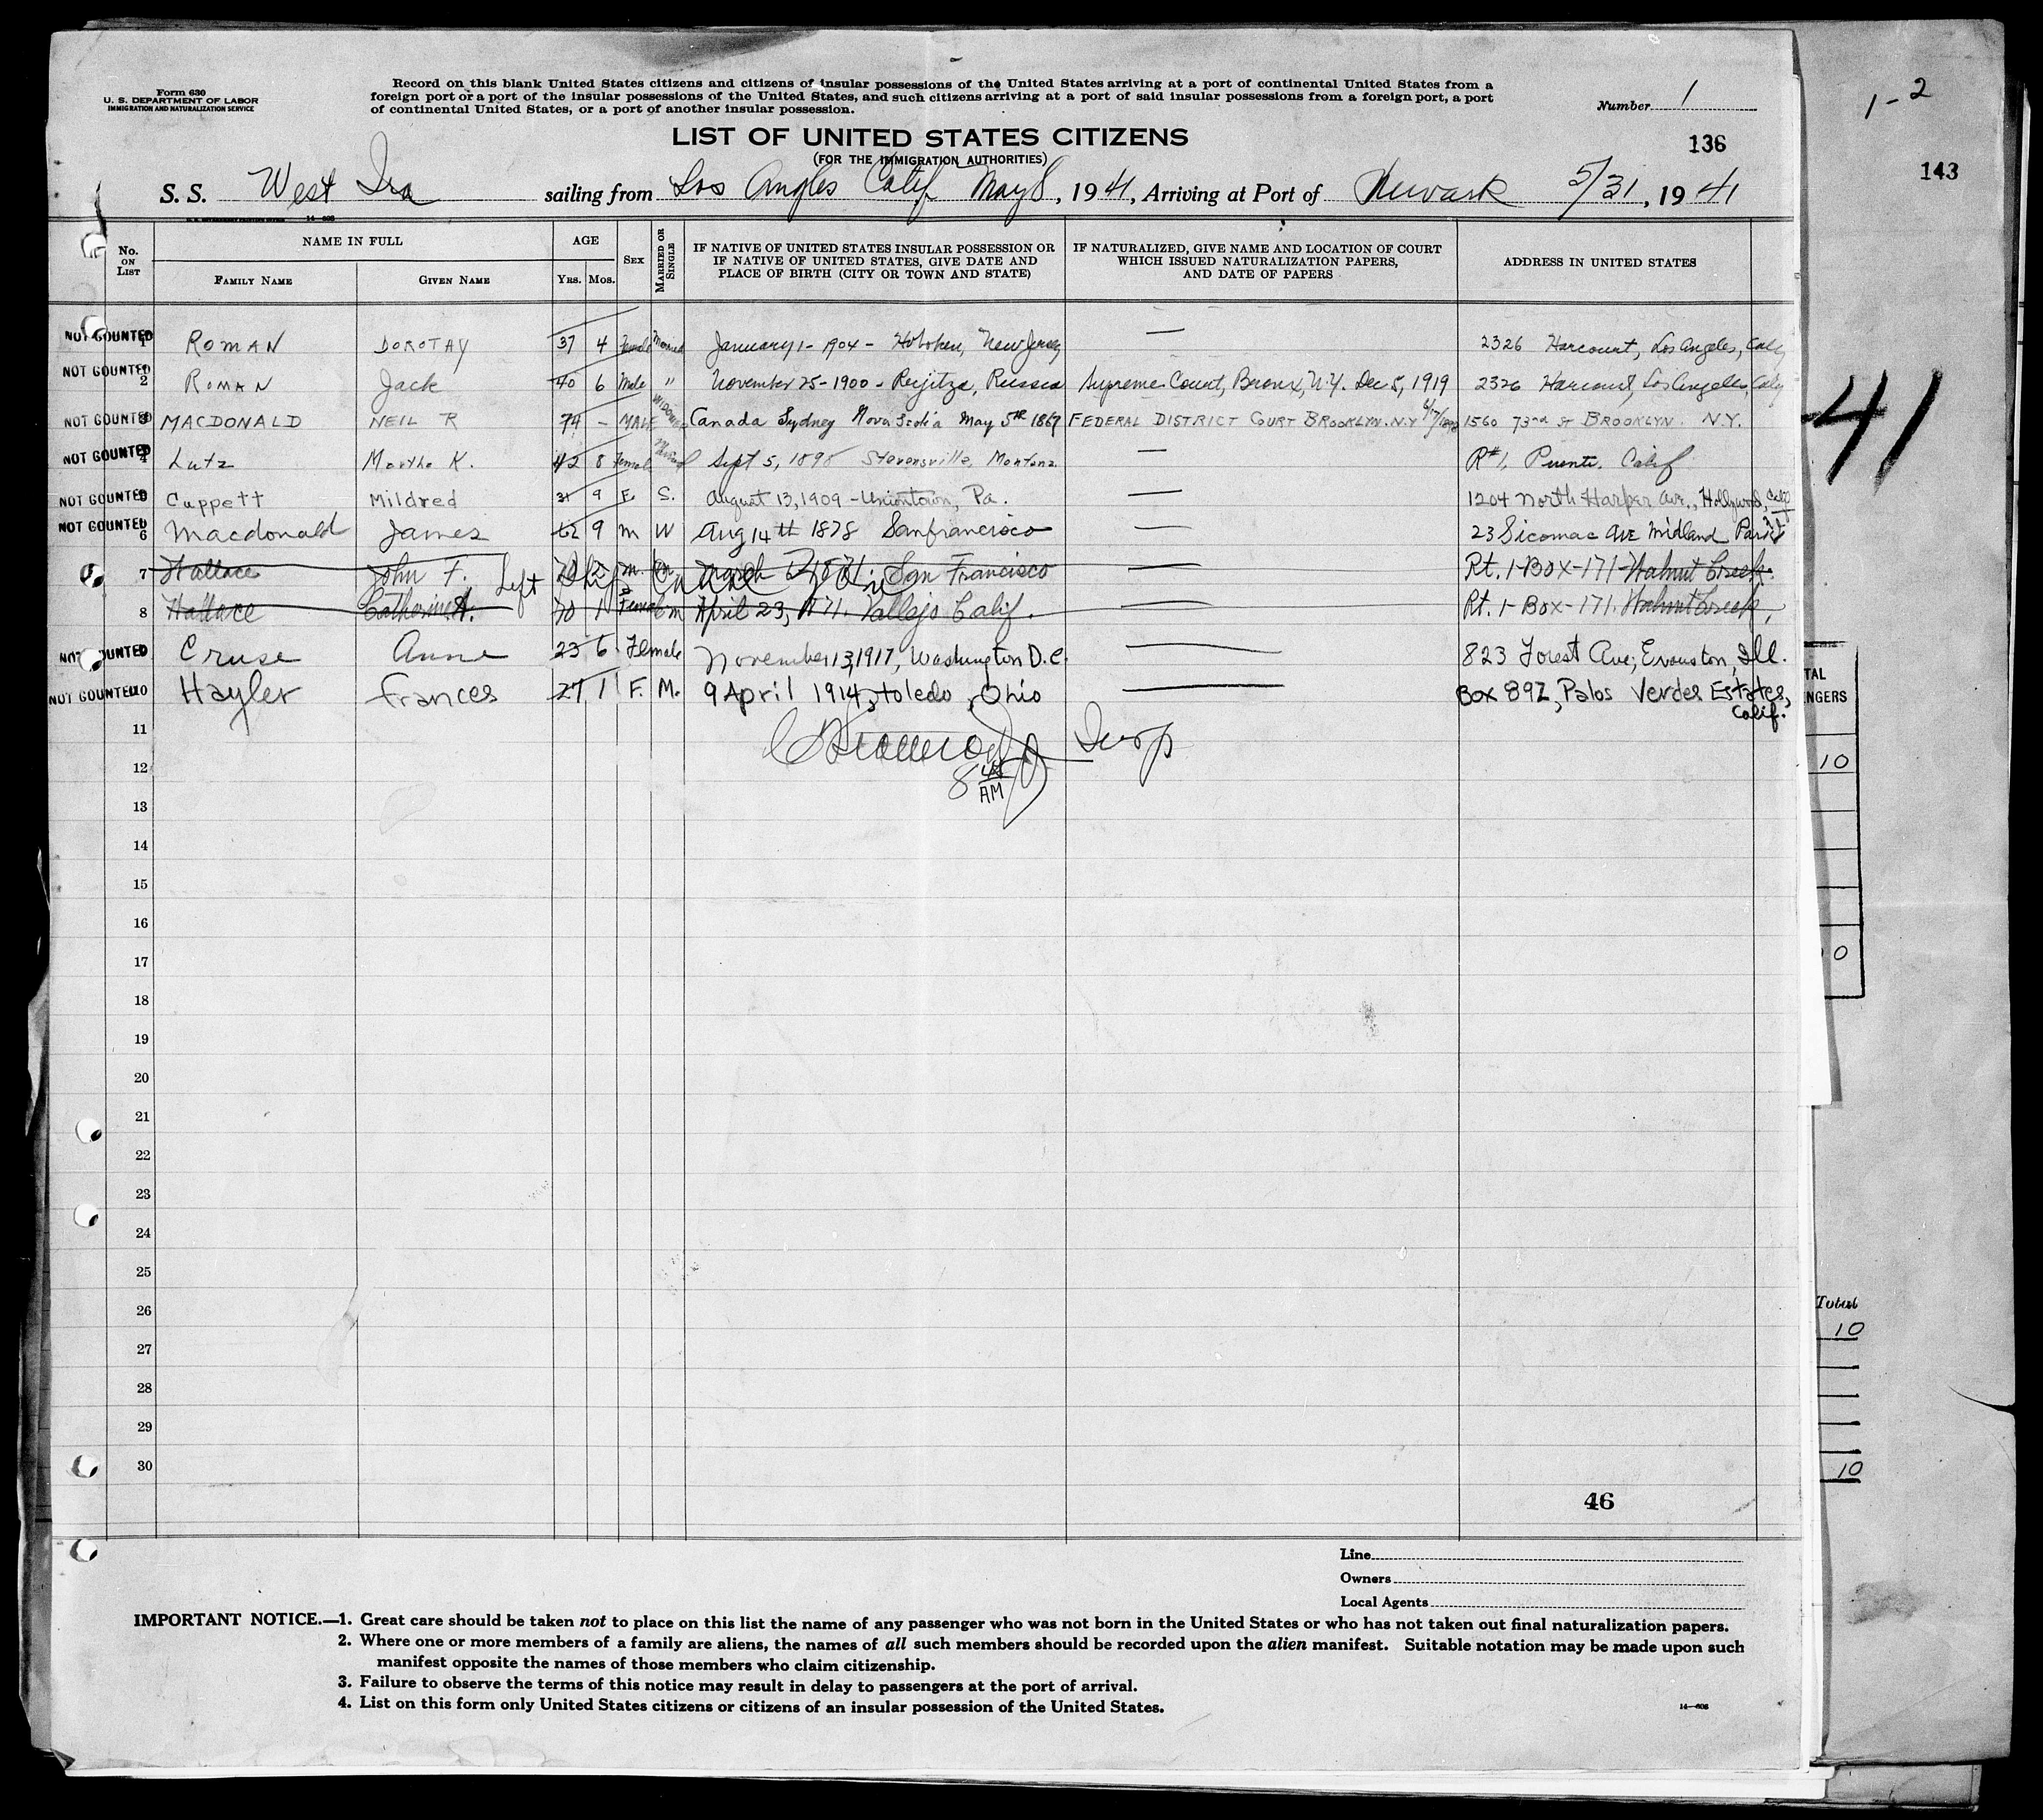 Form 630
U. S. DEPARTMENT OF LABOR
IMMIGRATION AND NATURALIZATION SERVICE
Record on this blank United States citizens and citizens of insular possessions of the United States arriving at a port of continental United States from a
foreign port or a port of the insular possessions of the United States, and such citizens arriving at a port of said insular possessions from a foreign port, a port
of continental United States, or a port of another insular possession.
Number 1
1-2
LIST OF UNITED STATES CITIZENS
(FOR THE IMMIGRATION AUTHORITIES)
136
143
S. S. West Ira sailing from Los Angles Calif May 8, 1941, Arriving at Port of Newark 5/31, 1941
No. ON LIST
NAME IN FULL
FAMILY NAME
GIVEN NAME
AGE
YRS. MOS.
SEX
MARRIED OR SINGLE
IF NATIVE OF UNITED STATES INSULAR POSSESSION OR
IF NATIVE OF UNITED STATES, GIVE DATE AND
PLACE OF BIRTH (CITY OR TOWN AND STATE)
IF NATURALIZED, GIVE NAME AND LOCATION OF COURT
WHICH ISSUED NATURALIZATION PAPERS,
AND DATE OF PAPERS
ADDRESS IN UNITED STATES
NOT COUNTED 1 ROMAN DOROTHY 37 4 Female Married January 1 - 1904 - Hoboken, New Jersey — 2326 Harcourt, Los Angeles, Calif
NOT COUNTED 2 ROMAN Jack 40 6 Male " November 25 - 1900 - Rejitza, Russia Supreme Court, Bronx, N.Y. Dec 5, 1919 2326 Harcourt, Los Angeles, Calif
NOT COUNTED 3 MACDONALD NEIL R 74 - MALE WIDOWER Canada Sydney Nova Scotia May 5th 1867 FEDERAL DISTRICT COURT BROOKLYN. N.Y 1560 73rd St BROOKLYN. N.Y.
NOT COUNTED 4 Lutz Martha K. 42 8 Female Married Sept 5, 1898 Stevensville, Montana — R#1, Puente, Calif
NOT COUNTED 5 Cuppett Mildred 31 9 F. S. August 13, 1909 - Uniontown, Pa. — 1204 North Harper Ave., Hollywood, Calif
NOT COUNTED 6 Macdonald James 62 9 m W Aug 14th 1878 Sanfrancisco — 23 Sicomac Ave Midland Park
7 Wallace John F. 70 2 m. m March 1871. San Francisco — Rt. 1-Box-171-Walnut Creek.
Left Ship Canal Zone
8 Wallace Catherine A. 70 1 Female m April 23, 1871. Vallejo Calif. — Rt. 1-Box-171. Walnut Creek,
NOT COUNTED 9 Cruse Anne 23 6 Female November 13, 1917, Washington D.C. — 823 Forest Ave., Evanston, Ill.
NOT COUNTED 10 Hayler Frances 27 1 F. M. 9 April 1914, Toledo, Ohio — Box 892, Palos Verdes Estates, Calif.
11
Insp
12
8 45 AM
13
14
15
16
17
18
19
20
21
22
23
24
25
26
27
28
29
30
46
41
TAL
NGERS
10
0
Total
10
10
Line
Owners
Local Agents
IMPORTANT NOTICE.—1. Great care should be taken not to place on this list the name of any passenger who was not born in the United States or who has not taken out final naturalization papers.
2. Where one or more members of a family are aliens, the names of all such members should be recorded upon the alien manifest. Suitable notation may be made upon such
manifest opposite the names of those members who claim citizenship.
3. Failure to observe the terms of this notice may result in delay to passengers at the port of arrival.
4. List on this form only United States citizens or citizens of an insular possession of the United States.